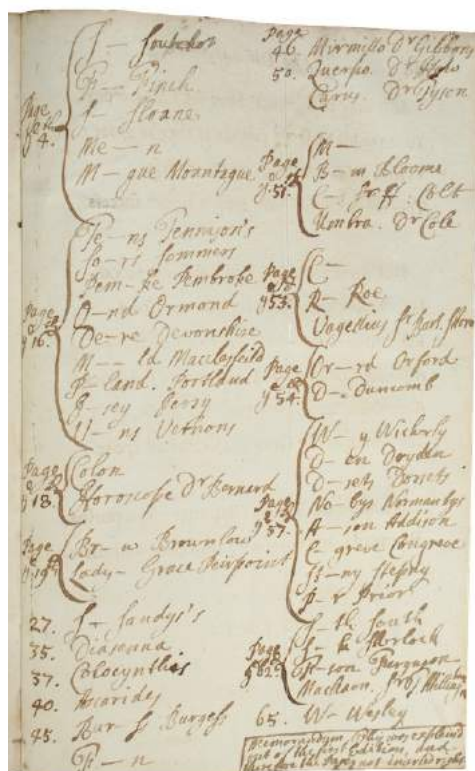 S— Southcot
F— Finch
S— Sloane
Me—n
M—gue Mountague
Page
y 4.
Te—ns Tennison's
So—rs Sommers
Pem—ke Pembroke
O—nd Ormond
De—re Devonshire
M——ld Maclesfeild
P—land. Portland
J—sey Jersy
V—ns Vernons
Page
y 16.
Colon
Horoscope Dr Bernard
Page
y 18.
Br—w Brownlow
Lady— Grace Peirpoint
Page
y 19
27. S— Sandys's
35. Diasenna
37. Colocynthis
40. Ascarides
45. Bur—ss Burgess
F—n
Page
46 Mirmillo Dr Gibbons
50. Querpo. Dr
Carus. Dr Tyson
M—
B—m Bloome
C— Sr H. Colt
Umbra. Dr Cole
Page
y 51.
C—
R— Roe
Vagellius Sr Bart. Shore
Page
y 53.
Or—rd Orford
D—. Duncomb
Page
y 54.
W—y Wicherly
D—en Dryden
D—sets Dorsets
No—bys Normanbys
A—ion Addison
C greve Congreve
St—ny Stepny
P—r Prior
Page
y 57.
S—th South
S—k Sherlock
F—son Ferguson
Machaon. Sr
Page
y 62
65. W— Wesley
Memorandum they were explained
out of the first Edition, and
therefore the Pages not inserted right